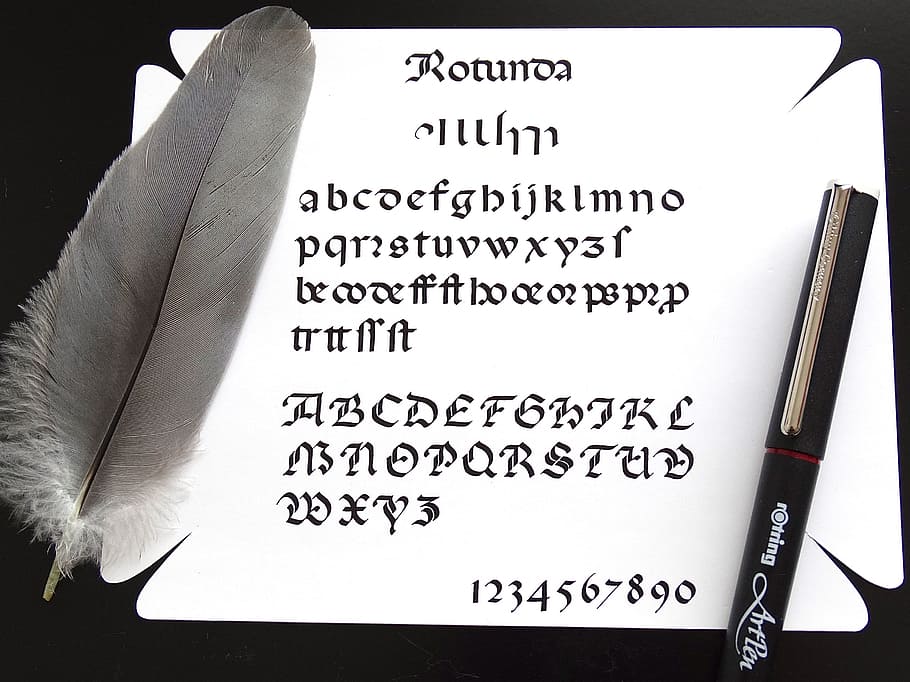 Rotunda
abcdefghijklmno
pqrꝛstuvwxyzſ
be co de ff
tr tt ſſ ſt
ABCDEFGHIKL
MNOPQRSTUV
WXYZ
1234567890
rotring ArtPen